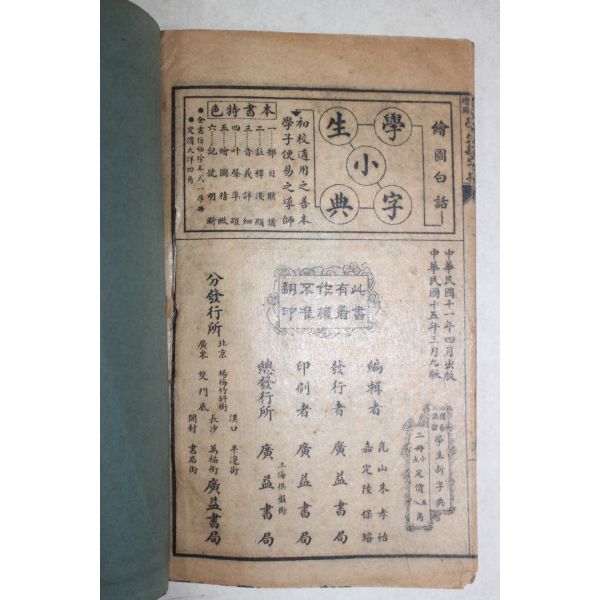 繪圖白話
學生小字典
初校適用之善本
學子便易之導師
本書特色
一……部目賅備
二……註釋淡顯
三……音義詳細
四……叶聲準確
五……繪圖精緻
六……記號明晰
●全書仿袖珍本式一厚冊
●定價大洋四角
中華民國十一年四月出版
中華民國十五年三月九版
學生新字典
二冊定價
此書有著作權翻印不准
編輯者 崑山朱孝怡
嘉定陸保璿
發行者 廣益書局
印刷者 廣益書局
上海棋盤街
總發行所 廣益書局
分發行所
北京 楊梅竹斜街
廣東 雙門底
漢口 半邊街
長沙 萬福街
開封 書店街
廣益書局